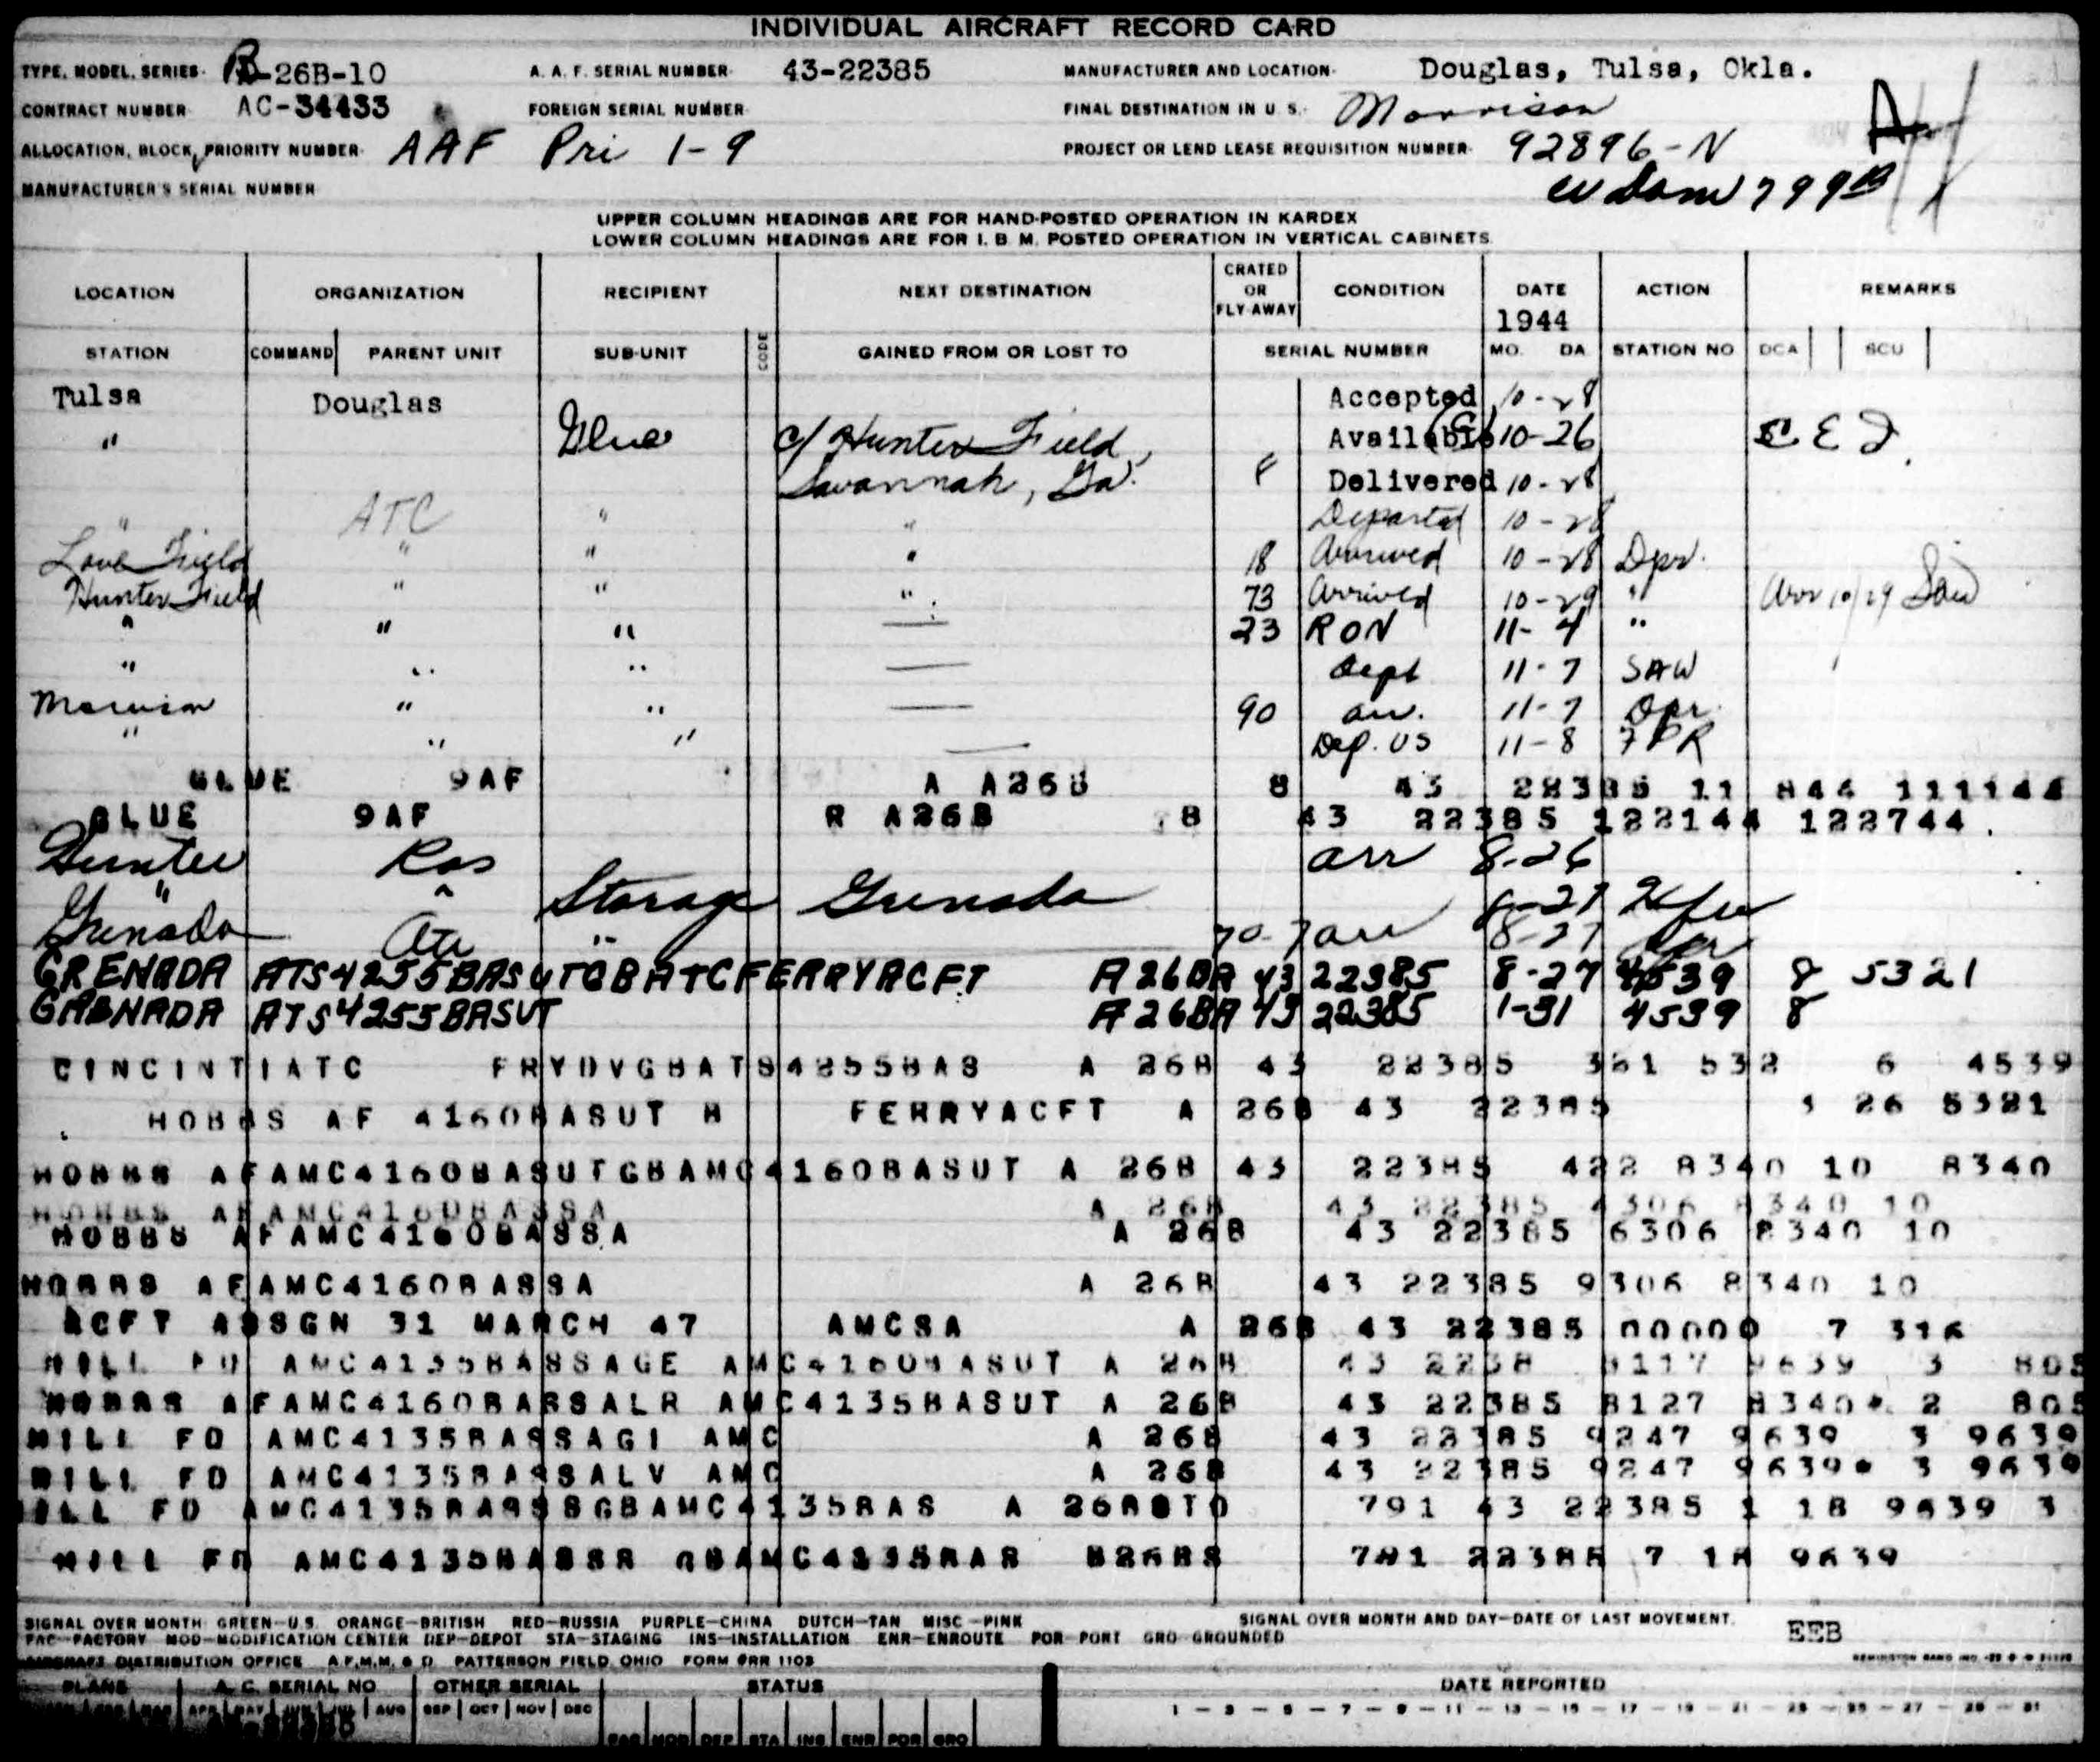 INDIVIDUAL AIRCRAFT RECORD CARD
TYPE, MODEL, SERIES· B-26B-10 A. A. F. SERIAL NUMBER· 43-22385 MANUFACTURER AND LOCATION· Douglas, Tulsa, Okla.
CONTRACT NUMBER· AC-34433 FOREIGN SERIAL NUMBER· FINAL DESTINATION IN U. S.· Morrison
ALLOCATION, BLOCK, PRIORITY NUMBER· AAF Pri 1-9 PROJECT OR LEND LEASE REQUISITION NUMBER· 92896-N
MANUFACTURER'S SERIAL NUMBER 799B
UPPER COLUMN HEADINGS ARE FOR HAND-POSTED OPERATION IN KARDEX
LOWER COLUMN HEADINGS ARE FOR I. B. M. POSTED OPERATION IN VERTICAL CABINETS
LOCATION ORGANIZATION RECIPIENT NEXT DESTINATION CRATED OR FLY-AWAY CONDITION DATE 1944 ACTION REMARKS
STATION COMMAND PARENT UNIT SUB-UNIT CODE GAINED FROM OR LOST TO SERIAL NUMBER MO. DA STATION NO DCA SCU
Tulsa Douglas Accepted 10-28
" Glue c/ Hunter Field, Available 10-26 C E J
Savannah, Ga. F Delivered 10-28
" ATC " " Departed 10-28
Love Field " " " 18 Arrived 10-28 Dpr.
Hunter Field " " " 73 Arrived 10-29 " Arr 10/29 Sav
" " " — 23 RON 11-4 "
" " " — Dept 11-7 SAW
Morrison " " — 90 arr. 11-7 Dpr.
" " " — Dep. US 11-8 FPR
GLUE 9AF A A26B 8 43 22385 11 844 111144
GLUE 9AF R A26B 8 43 22385 122144 122744
Hunter Ros arr 8-26
" " Storage Grenada 8-27
Grenada " 8-27
GRENADA ATS4255BASUTGBATCFERRYACFT A26BA 43 22385 8-27 4539 8 5321
GRENADA ATS4255BASUT A26BA 43 22385 1-31 4539 8
CINCINTIATC FRYDVGBATS4255BAS A 26B 43 22385 321 532 6 4539
HOBBS AF 4160BASUT B FERRYACFT A 26B 43 22385 3 26 5321
HOBBS AFAMC4160BASUTGBAMC4160BASUT A 26B 43 22385 422 8340 10 8340
HOBBS AFAMC4160BASSA A 26B 43 22385 4306 8340 10
HOBBS AFAMC4160BASSA A 26B 43 22385 6306 8340 10
HOBBS AFAMC4160BASSA A 26B 43 22385 9306 8340 10
ACFT ASSGN 31 MARCH 47 AMCSA A 26B 43 22385 00000 7 316
HILL FD AMC4135BASSAGE AMC4160BASUT A 26B 43 2238 8117 9639 3 805
HOBBS AFAMC4160BASSALR AMC4135BASUT A 26B 43 22385 8127 8340* 2 805
HILL FD AMC4135BASSAGI AMC A 26B 43 22385 9247 9639 3 9639
HILL FD AMC4135BASSALV AMC A 26B 43 22385 9247 9639* 3 9639
HILL FD AMC4135BASSSGBAMC4135BAS A 26B 43 22385 1 18 9639 3
HILL FD AMC4135BASSR GBAMC4135BAS 22385 7 18 9639
SIGNAL OVER MONTH: GREEN—U.S. ORANGE—BRITISH RED—RUSSIA PURPLE—CHINA DUTCH—TAN MISC—PINK SIGNAL OVER MONTH AND DAY—DATE OF LAST MOVEMENT.
FAC—FACTORY MOD—MODIFICATION CENTER DEP—DEPOT STA—STAGING INS—INSTALLATION ENR—ENROUTE POR—PORT GRO—GROUNDED EEB
AIRCRAFT DISTRIBUTION OFFICE A.F.M.M. & D. PATTERSON FIELD, OHIO FORM #RR 1103
PLANE A. C. SERIAL NO OTHER SERIAL STATUS DATE REPORTED
APR MAY JUN JUL AUG SEP OCT NOV DEC 1 — 3 — 5 — 7 — 9 — 11 — 13 — 15 — 17 — 19 — 21 — 23 — 25 — 27 — 29 — 31
FAC MOD DEP STA INS ENR POR GRO